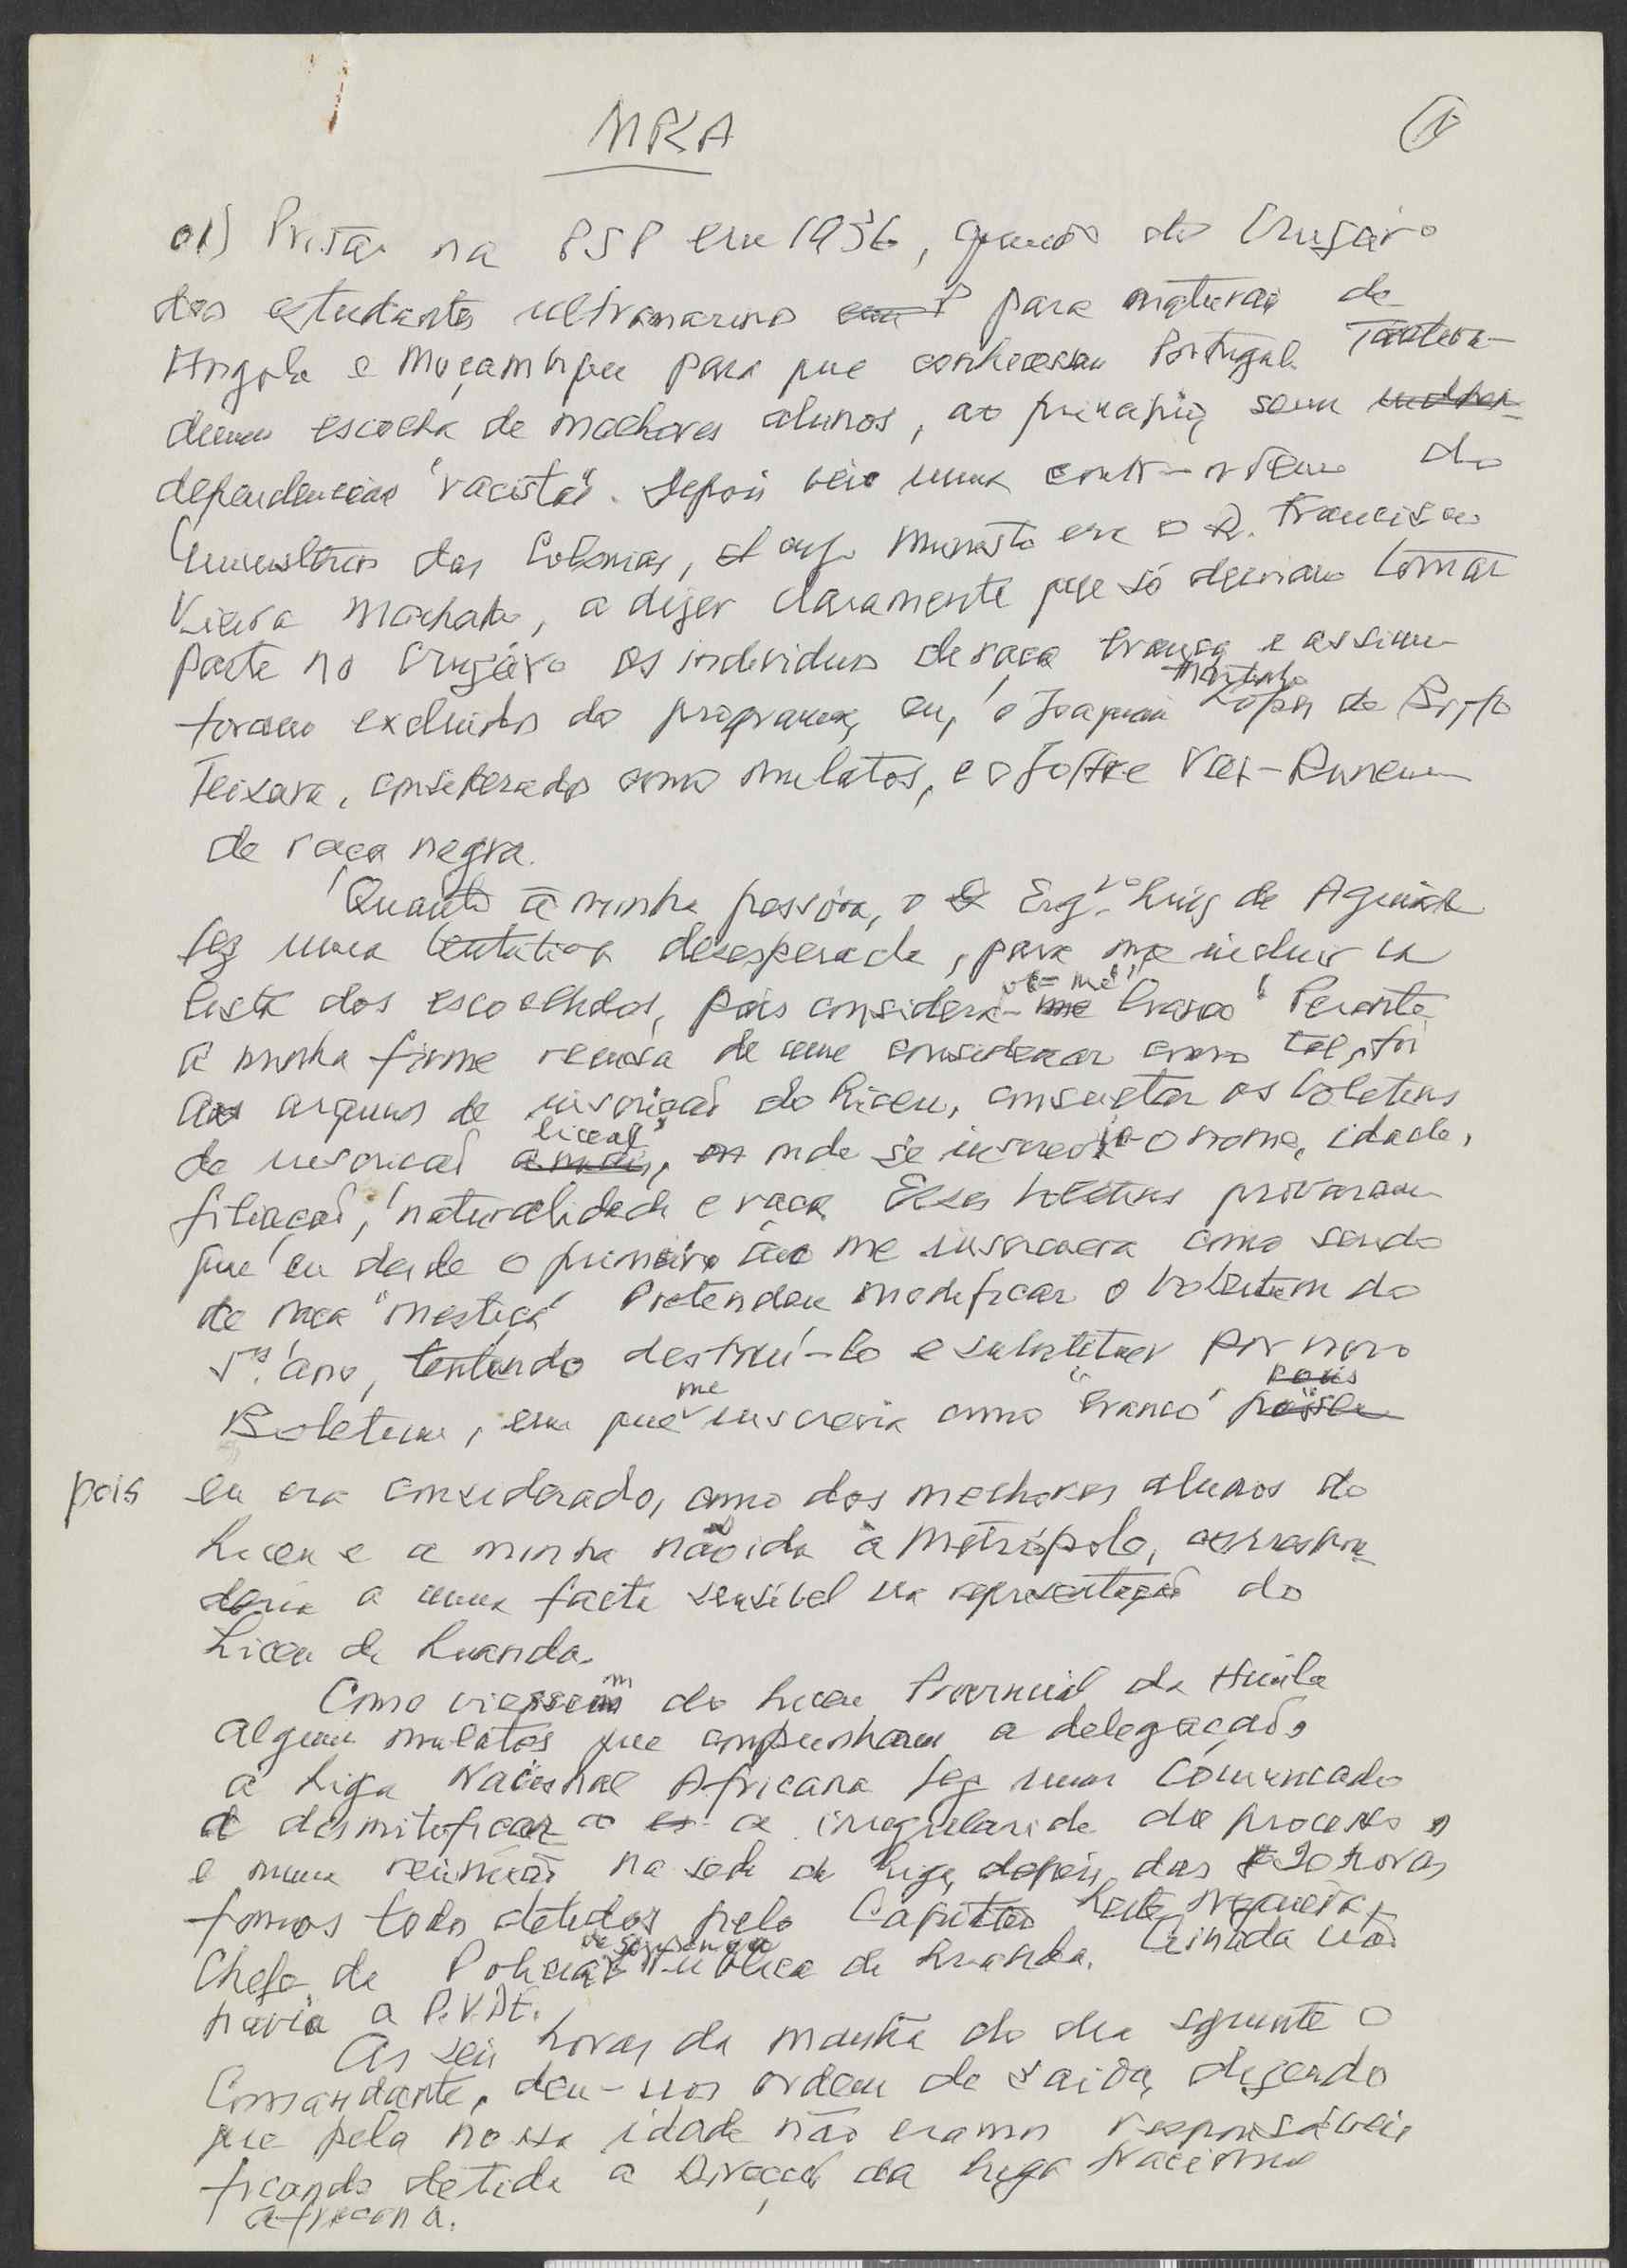 MRA
01) Prisão na PSP em 1936, quando do Cruzeiro
dos estudantes ultramarinos para naturais de
Angola e Moçambique para que conhecessem Portugal.
escolha de melhores alunos, ao principio, sem
dependencias "racistas". Depois veio uma contra-ordem do
Ministério das Colonias, cujo Ministro era o Dr. Francisco
Vieira Machado, a dizer claramente que só deviam tomar
parte no Cruzeiro os individuos de raça branca e assim
foram excluidos do programa, eu, o Joaquim Martinho Lopes de Brito
Teixeira, considerados como mulatos, e o Joffre Van-Dunem
de raça negra.
Quanto à minha pessoa, o Engro Luis de Aguiar
fez uma tentativa desesperada, para me incluir na
lista dos escolhidos, pois considera-va-me "branco" Perante
a minha firme recusa de me considerar como tal, foi
aos arquivos de inscrição do Liceu, consultar os boletins
de inscrição liceal, onde se inscrevia o nome, idade,
filiação, naturalidade e raça. Esses boletins provaram
que eu desde o primeiro ano me inscrevera como sendo
de raça "mestiça" Pretendeu modificar o boletim do
5º ano, tentando destruí-lo e substituir por novo
Boletim, em que me inscrevia como "branco"
pois eu era considerado, como dos melhores alunos do
Liceu e a minha não ida à Metrópole, correspon-
deria a uma falta sensível na representação do
Liceu de Luanda.
Como viessem do Liceu Provincial da Huíla
alguns mulatos que compunham a delegação,
a Liga Nacional Africana fez um comunicado
a desmitificar a irregularide do processo
e numa reunião na sede da Liga, depois das 20 horas
fomos todos detidos pelo Capitão Leite Nogueira,
Chefe da Policia de Segurança Pública de Luanda. Ainda não
havia a P.V.D.E.
As seis horas da manhã do dia seguinte o
Comandante, deu-nos ordem de saida, dizendo
que pela nossa idade não eramos responsáveis
ficando detida a Direcção da Liga Nacional
africana.